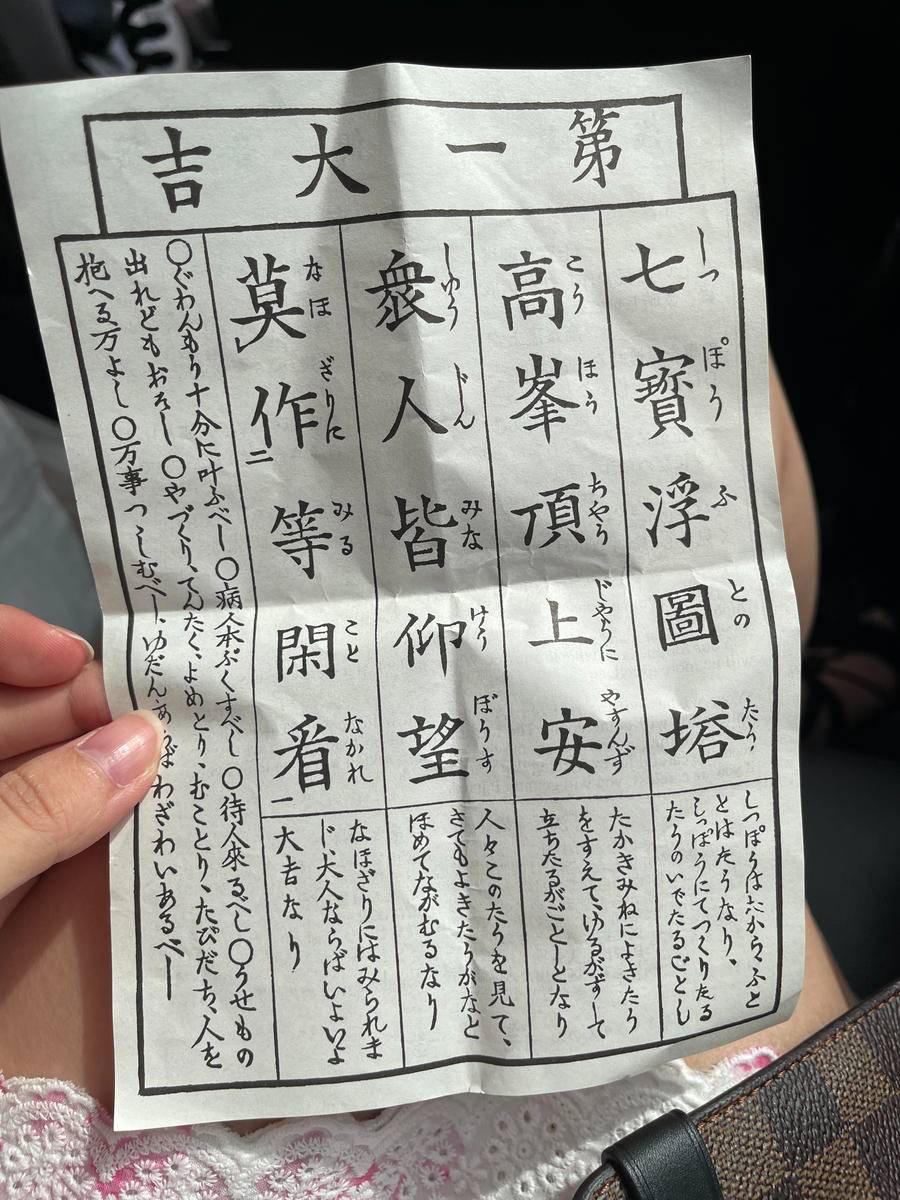 第一大吉
七寶浮圖塔
しっぽうふとのたう
しっぽうは七たから、ふと
とはたうなり、
しっぽうにてつくりたる
たうのいでたるごとし
高峯頂上安
こうほうちやうじやうにやすんず
たかきみねによきたう
をすえて、ゆるがずして
立ちたるがごとしとなり
衆人皆仰望
しゆうじんみなけうぼうす
人々このたうを見て、
さてもよきたうかなと
ほめてながむるなり
莫作二等閑看一
なほざりにみることなかれ
なほざりにはみられま
じ、大人ならばいよいよ
大吉なり
〇ぐわんもう十分に叶ふべし〇病人本ぷくすべし〇待人來るべし〇うせもの
出れどもおそし〇やづくり、てんたく、よめとり、むことり、たびだち、人を
抱へる万よし〇万事つゝしむべし、ゆだんあらばわざわいあるべし